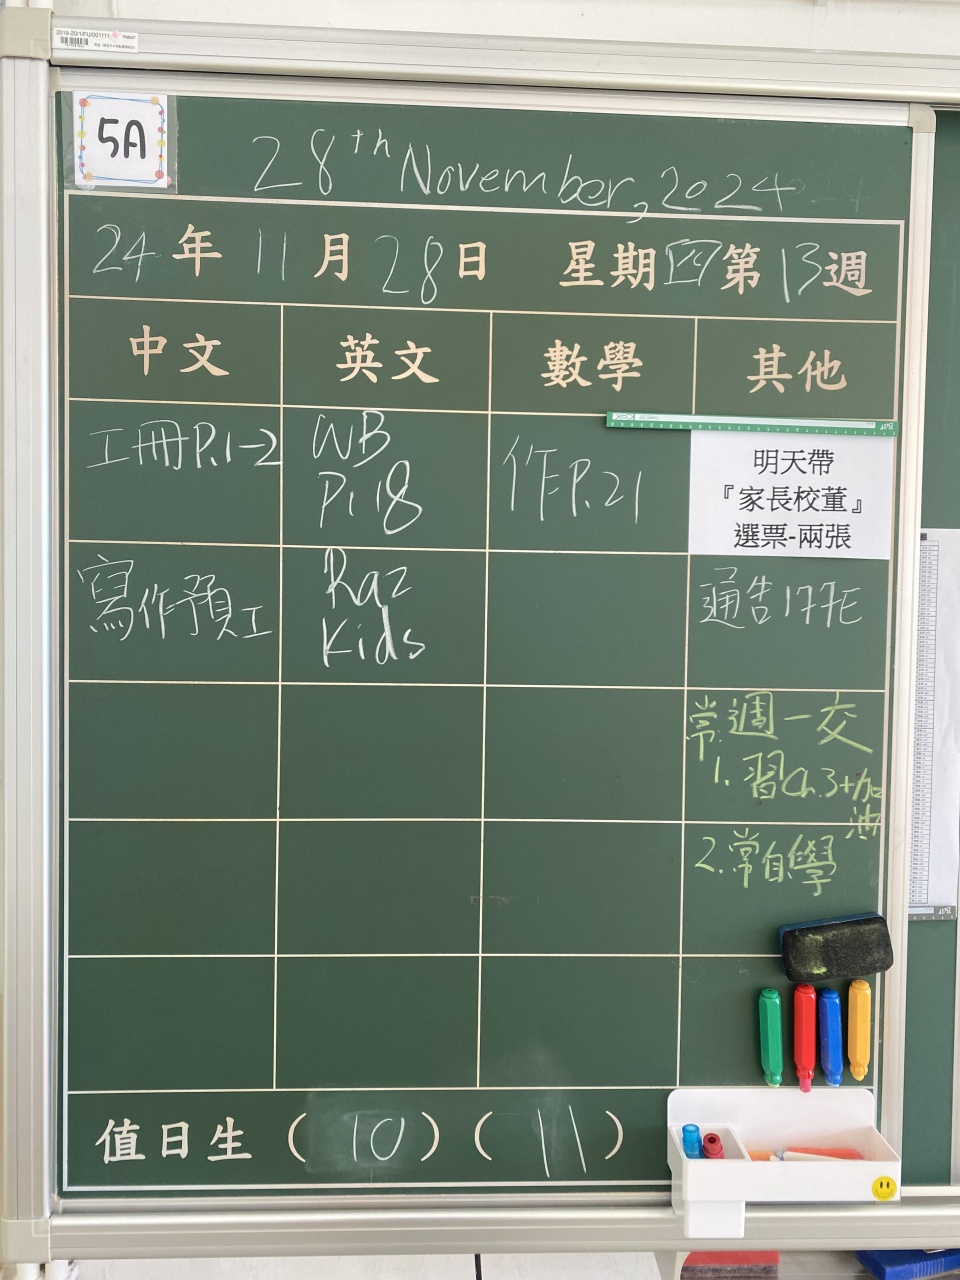 2019-20/1/FU/001111
5A
28th November, 2024
24年11月28日 星期四第13週
中文 英文 數學 其他
工冊P.1-2
WB
P.18
作P.21
明天帶
『家長校董』
選票-兩張
寫作預工
Raz
Kids
通告177E
常:週一交
1. 習Ch.3+加油
2.常自學
值日生 (10) (11)